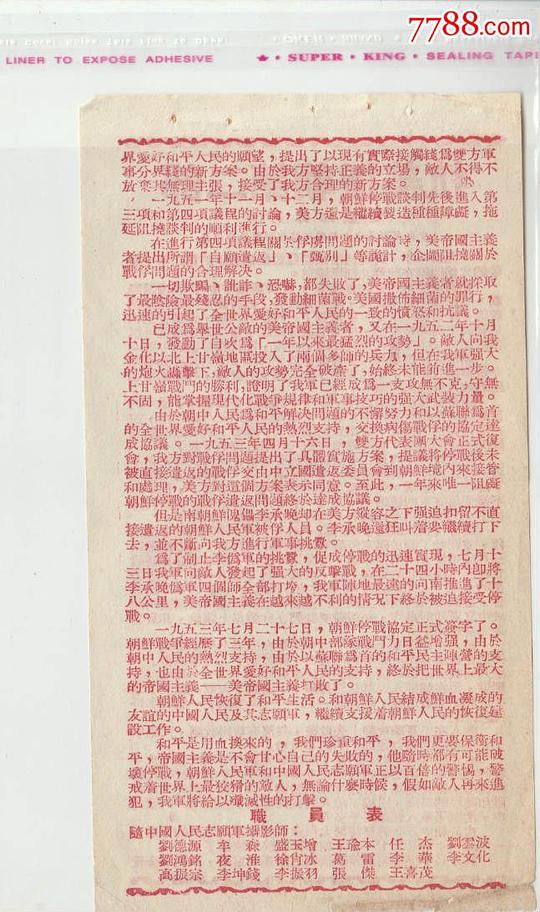 7788.com
LINER TO EXPOSE ADHESIVE ★ · SUPER · KING · SEALING TAPE
界愛好和平人民的願望，提出了以現有實際接觸綫爲雙方軍
事分界綫的新方案。由於我方堅持正義的立場，敵人不得不
放棄其無理主張，接受了我方合理的新方案。
一九五一年十一月、十二月，朝鮮停戰談判先後進入第
三項和第四項議程的討論，美方還是繼續製造種種障礙，拖
延阻撓談判的順利進行。
在進行第四項議程關於俘虜問題的討論時，美帝國主義
者提出所謂「自願遣返」、「甄別」等詭計，企圖阻撓關於
戰俘問題的合理解决。
一切欺騙、訛詐、恐嚇，都失敗了，美帝國主義者就採取
了最陰險最殘忍的手段，發動細菌戰。美國撒佈細菌的罪行，
迅速的引起了全世界愛好和平人民的一致的憤怒和抗議。
已成爲舉世公敵的美帝國主義者，又在一九五二年十月
十日，發動了自吹爲「一年以來最猛烈的攻勢」。敵人向我
金化以北上甘嶺地區投入了兩個多師的兵力，但在我軍强大
的炮火轟擊下，敵人的攻勢完全破產了，始終未能前進一步。
上甘嶺戰鬥的勝利，證明了我軍已經成爲一支攻無不克，守無
不固，能掌握現代化戰爭規律和軍事技巧的强大武裝力量。
由於朝中人民爲和平解决問題的不懈努力和以蘇聯爲首
的全世界愛好和平人民的熱烈支持，交換病傷戰俘的協定達
成協議。一九五三年四月十六日，雙方代表團大會正式復
會，我方對戰俘問題提出了具體實施方案，提議將停戰後未
被直接遣返的戰俘交由中立國遣返委員會到朝鮮境內來接管
和處理，美方對這個方案表示同意。至此，一年來唯一阻礙
朝鮮停戰的戰俘遣返問題終於達成協議。
但是南朝鮮傀儡李承晚却在美方縱容之下强迫扣留不直
接遣返的朝鮮人民軍被俘人員。李承晚還狂叫着要繼續打下
去，並不斷向我方進行軍事挑釁。
爲了制止李僞軍的挑釁，促成停戰的迅速實現，七月十
三日我軍向敵人發起了强大的反擊戰，在二十四小時內即將
李承晚僞軍四個師全部打垮，我軍陣地最遠的向南推進了十
八公里，美帝國主義在越來越不利的情况下終於被迫接受停
戰。
一九五三年七月二十七日，朝鮮停戰協定正式簽字了。
朝鮮戰爭經歷了三年，由於朝中部隊戰鬥力日益增强，由於
朝中人民的熱烈支持，由於以蘇聯爲首的和平民主陣營的支
持，也由於全世界愛好和平人民的支持，終於把世界上最大
的帝國主義——美帝國主義打敗了。
朝鮮人民恢復了和平生活。和朝鮮人民結成鮮血凝成的
友誼的中國人民及其志願軍，繼續支援着朝鮮人民的恢復建
設工作。
和平是用血換來的，我們珍重和平，我們更要保衛和
平，帝國主義是不會甘心自己的失敗的，他隨時都有可能破
壞停戰，朝鮮人民軍和中國人民志願軍正以百倍的警惕，警
戒着世界上最狡猾的敵人，無論什麽時候，假如敵人再來進
犯，我軍將給以殲滅性的打擊。
職員表
隨中國人民志願軍攝影師：
劉德源 牟森 盛玉增 王瑜本 任杰 劉雲波
劉鴻銘 夜淮 徐肖冰 葛雷 李華 李文化
高振宗 李坤錢 李振羽 張傑 王喜茂